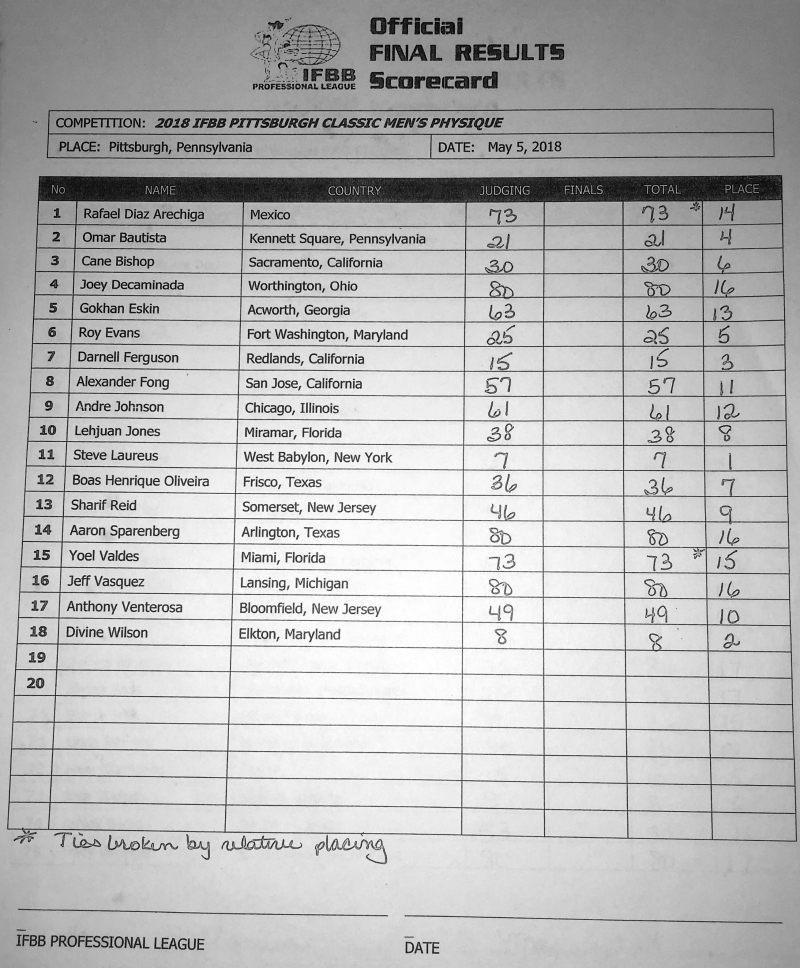 Official
FINAL RESULTS
Scorecard
IFBB
PROFESSIONAL LEAGUE
COMPETITION: 2018 IFBB PITTSBURGH CLASSIC MEN'S PHYSIQUE
PLACE: Pittsburgh, Pennsylvania DATE: May 5, 2018
No NAME COUNTRY JUDGING FINALS TOTAL PLACE
1 Rafael Diaz Arechiga Mexico 73 73 * 14
2 Omar Bautista Kennett Square, Pennsylvania 21 21 4
3 Cane Bishop Sacramento, California 30 30 6
4 Joey Decaminada Worthington, Ohio 80 80 16
5 Gokhan Eskin Acworth, Georgia 63 63 13
6 Roy Evans Fort Washington, Maryland 25 25 5
7 Darnell Ferguson Redlands, California 15 15 3
8 Alexander Fong San Jose, California 57 57 11
9 Andre Johnson Chicago, Illinois 61 61 12
10 Lehjuan Jones Miramar, Florida 38 38 8
11 Steve Laureus West Babylon, New York 7 7 1
12 Boas Henrique Oliveira Frisco, Texas 36 36 7
13 Sharif Reid Somerset, New Jersey 46 46 9
14 Aaron Sparenberg Arlington, Texas 80 80 16
15 Yoel Valdes Miami, Florida 73 73 * 15
16 Jeff Vasquez Lansing, Michigan 80 80 16
17 Anthony Venterosa Bloomfield, New Jersey 49 49 10
18 Divine Wilson Elkton, Maryland 8 8 2
19
20
* Ties broken by relative placing
IFBB PROFESSIONAL LEAGUE DATE